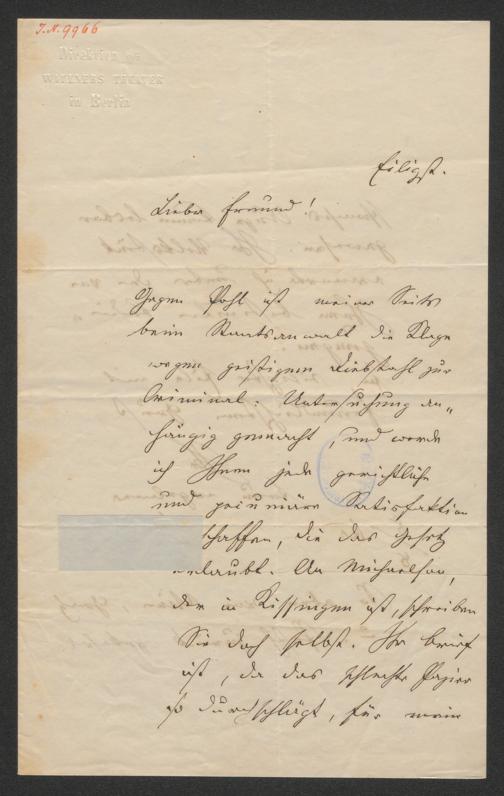 J.N. 9966
Direktion des
WALLNERS THEATER
in Berlin
Eiligst.
Lieber Freund!
Gegen Pohl ist meiner Seits
beim Staatsanwalt die Klage
wegen geistigem Diebstahl zur
Criminal: Untersuchung an„
hängig gemacht, und werde
ich Ihnen jede gerichtliche
und pecuniäre Satisfaktion
schaffen, die das Gesetz
erlaubt. An Michaelson,
der in Kissingen ist, schreiben
Sie doch selbst. Ihr Brief
ist, da das schlechte Papier
so durchschlägt, für mein